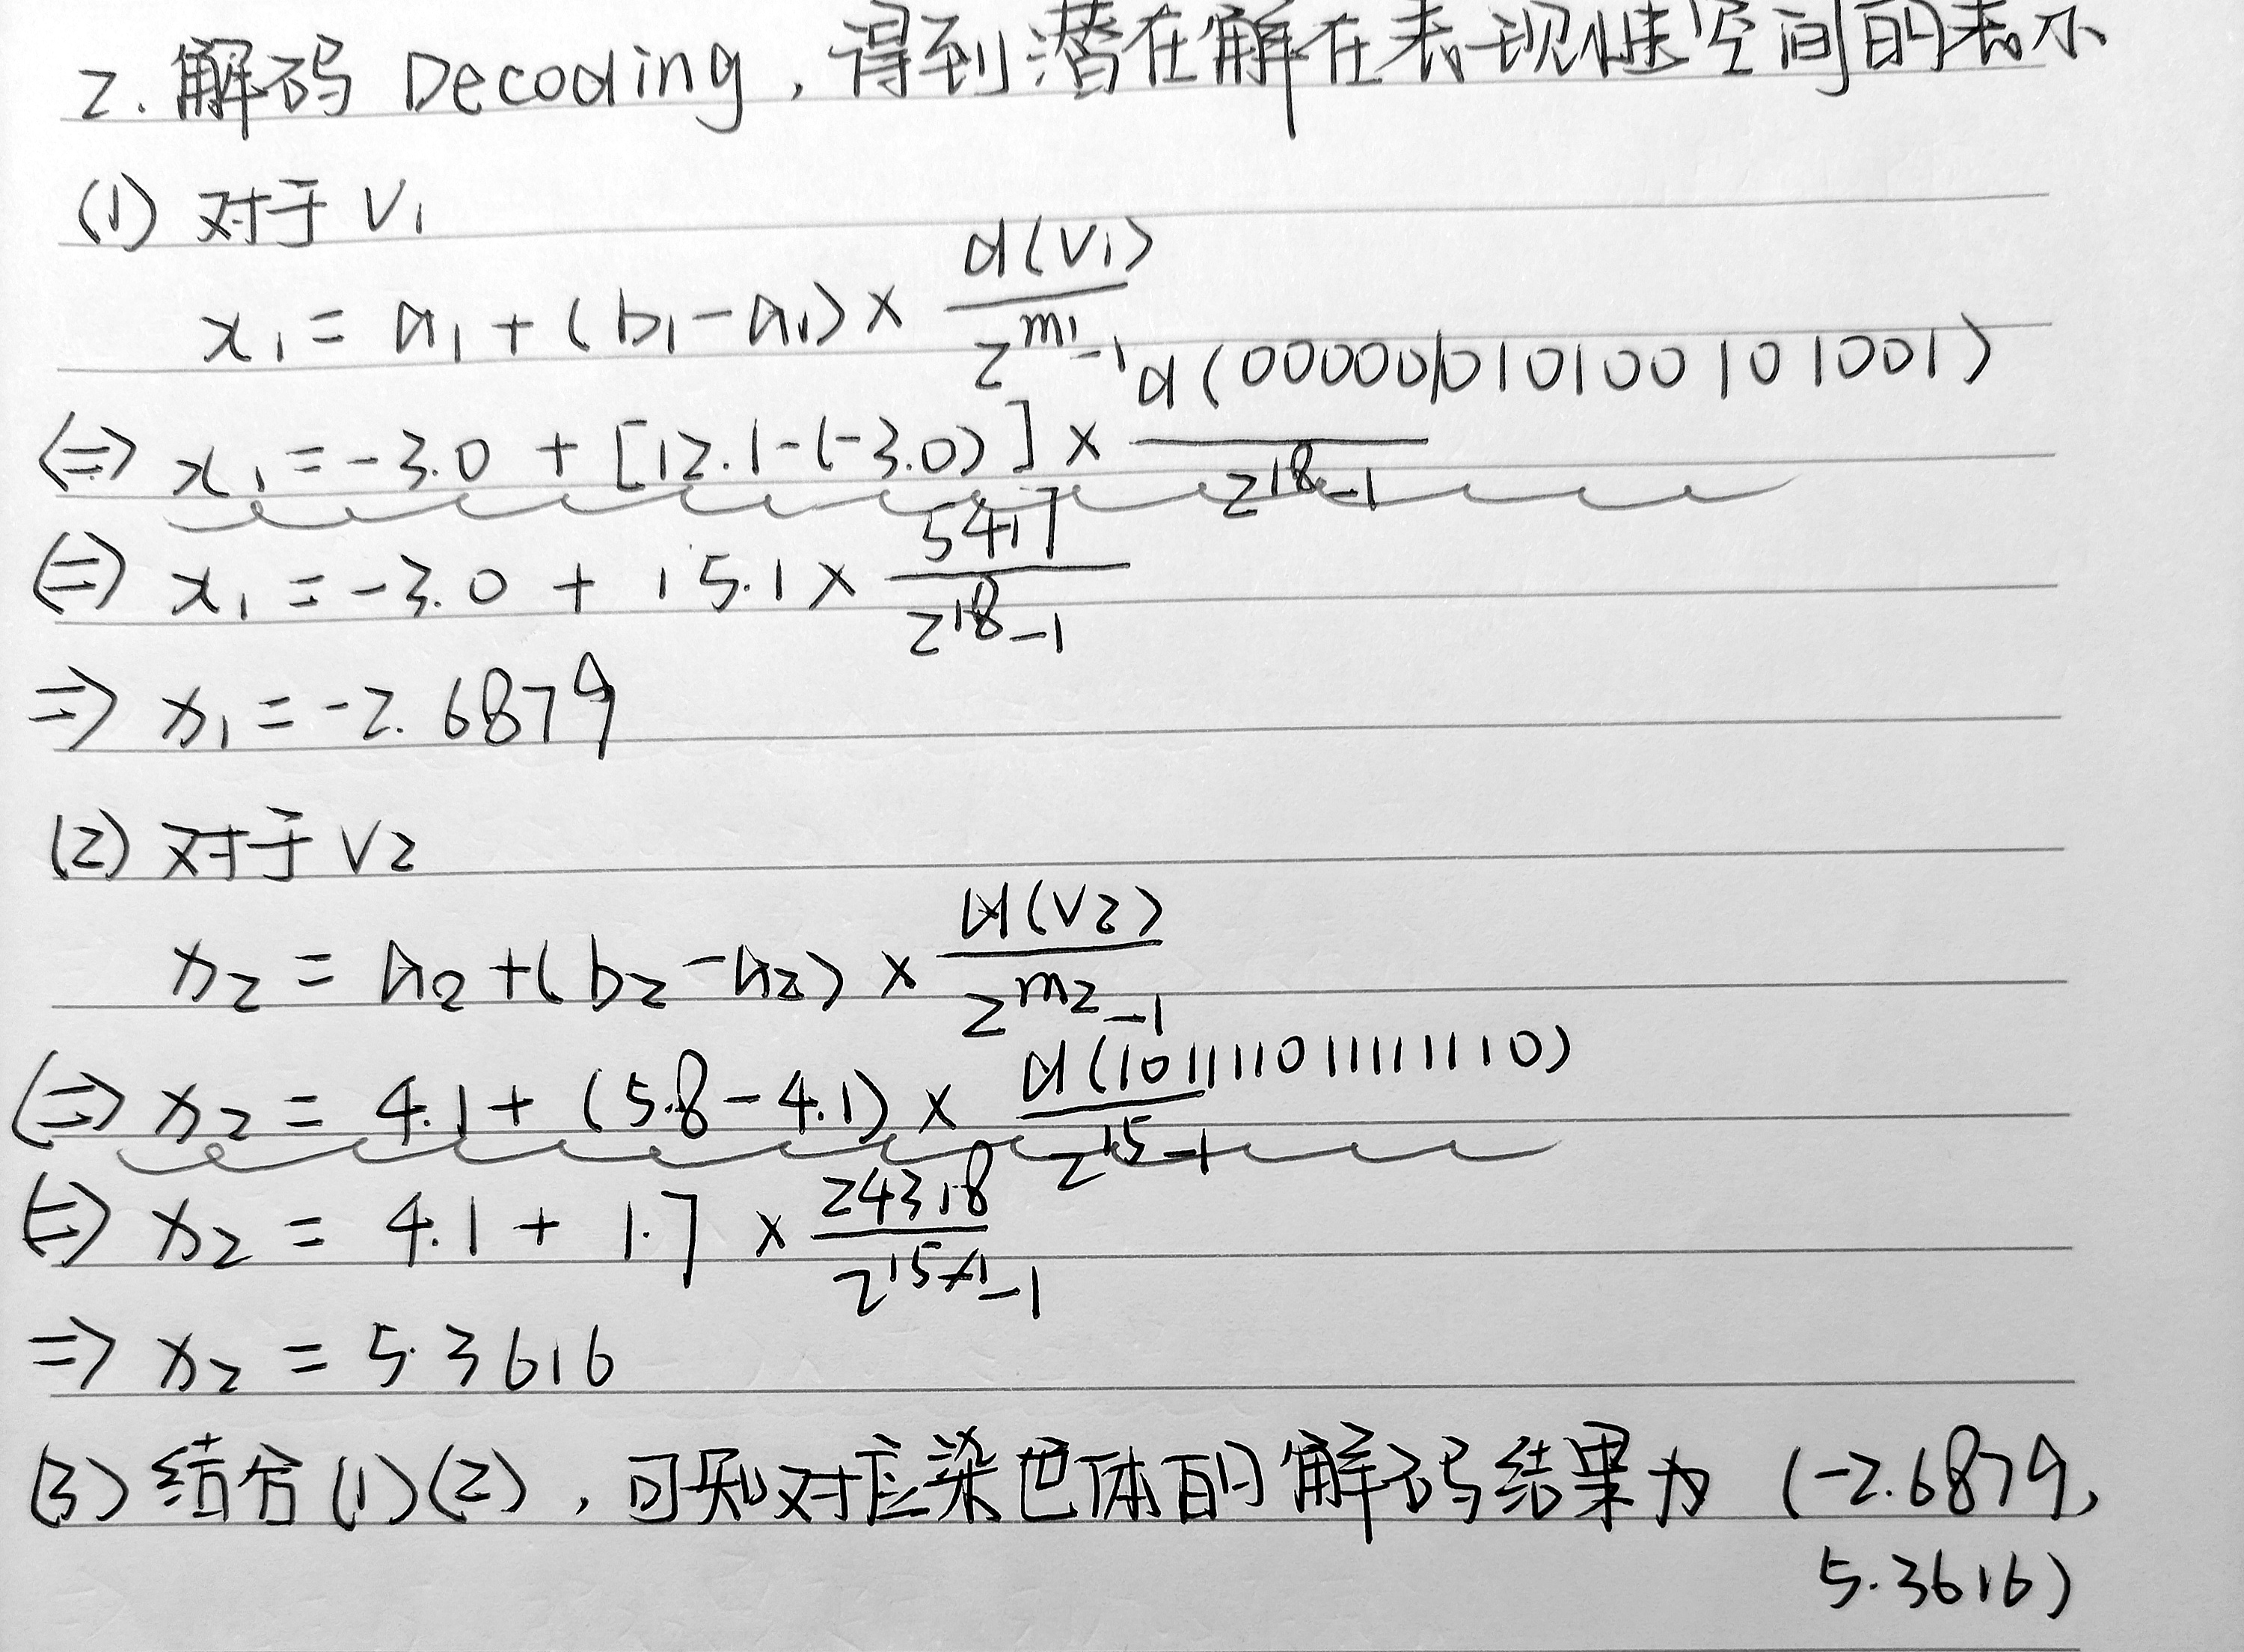 2. 解码 Decoding, 得到潜在解在表现性空间的表示
(1) 对于 V₁
x₁ = a₁ + (b₁ - a₁) × d(V₁) / 2^m₁ - 1
(=) x₁ = -3.0 + [12.1 - (-3.0)] × d(000001010100101001) / 2^18 - 1
(=) x₁ = -3.0 + 15.1 × 5417 / 2^18 - 1
=> x₁ = -2.6879
(2) 对于 V2
x₂ = a₂ + (b₂ - a₂) × d(V2) / 2^m₂ - 1
(=> x₂ = 4.1 + (5.8 - 4.1) × d(101111011111110) / 2^15 - 1
(=) x₂ = 4.1 + 1.7 × 24318 / 2^15 - 1
=> x₂ = 5.3616
(3) 结合(1)(2), 可知对应染色体的解码结果为 (-2.6879,
5.3616)